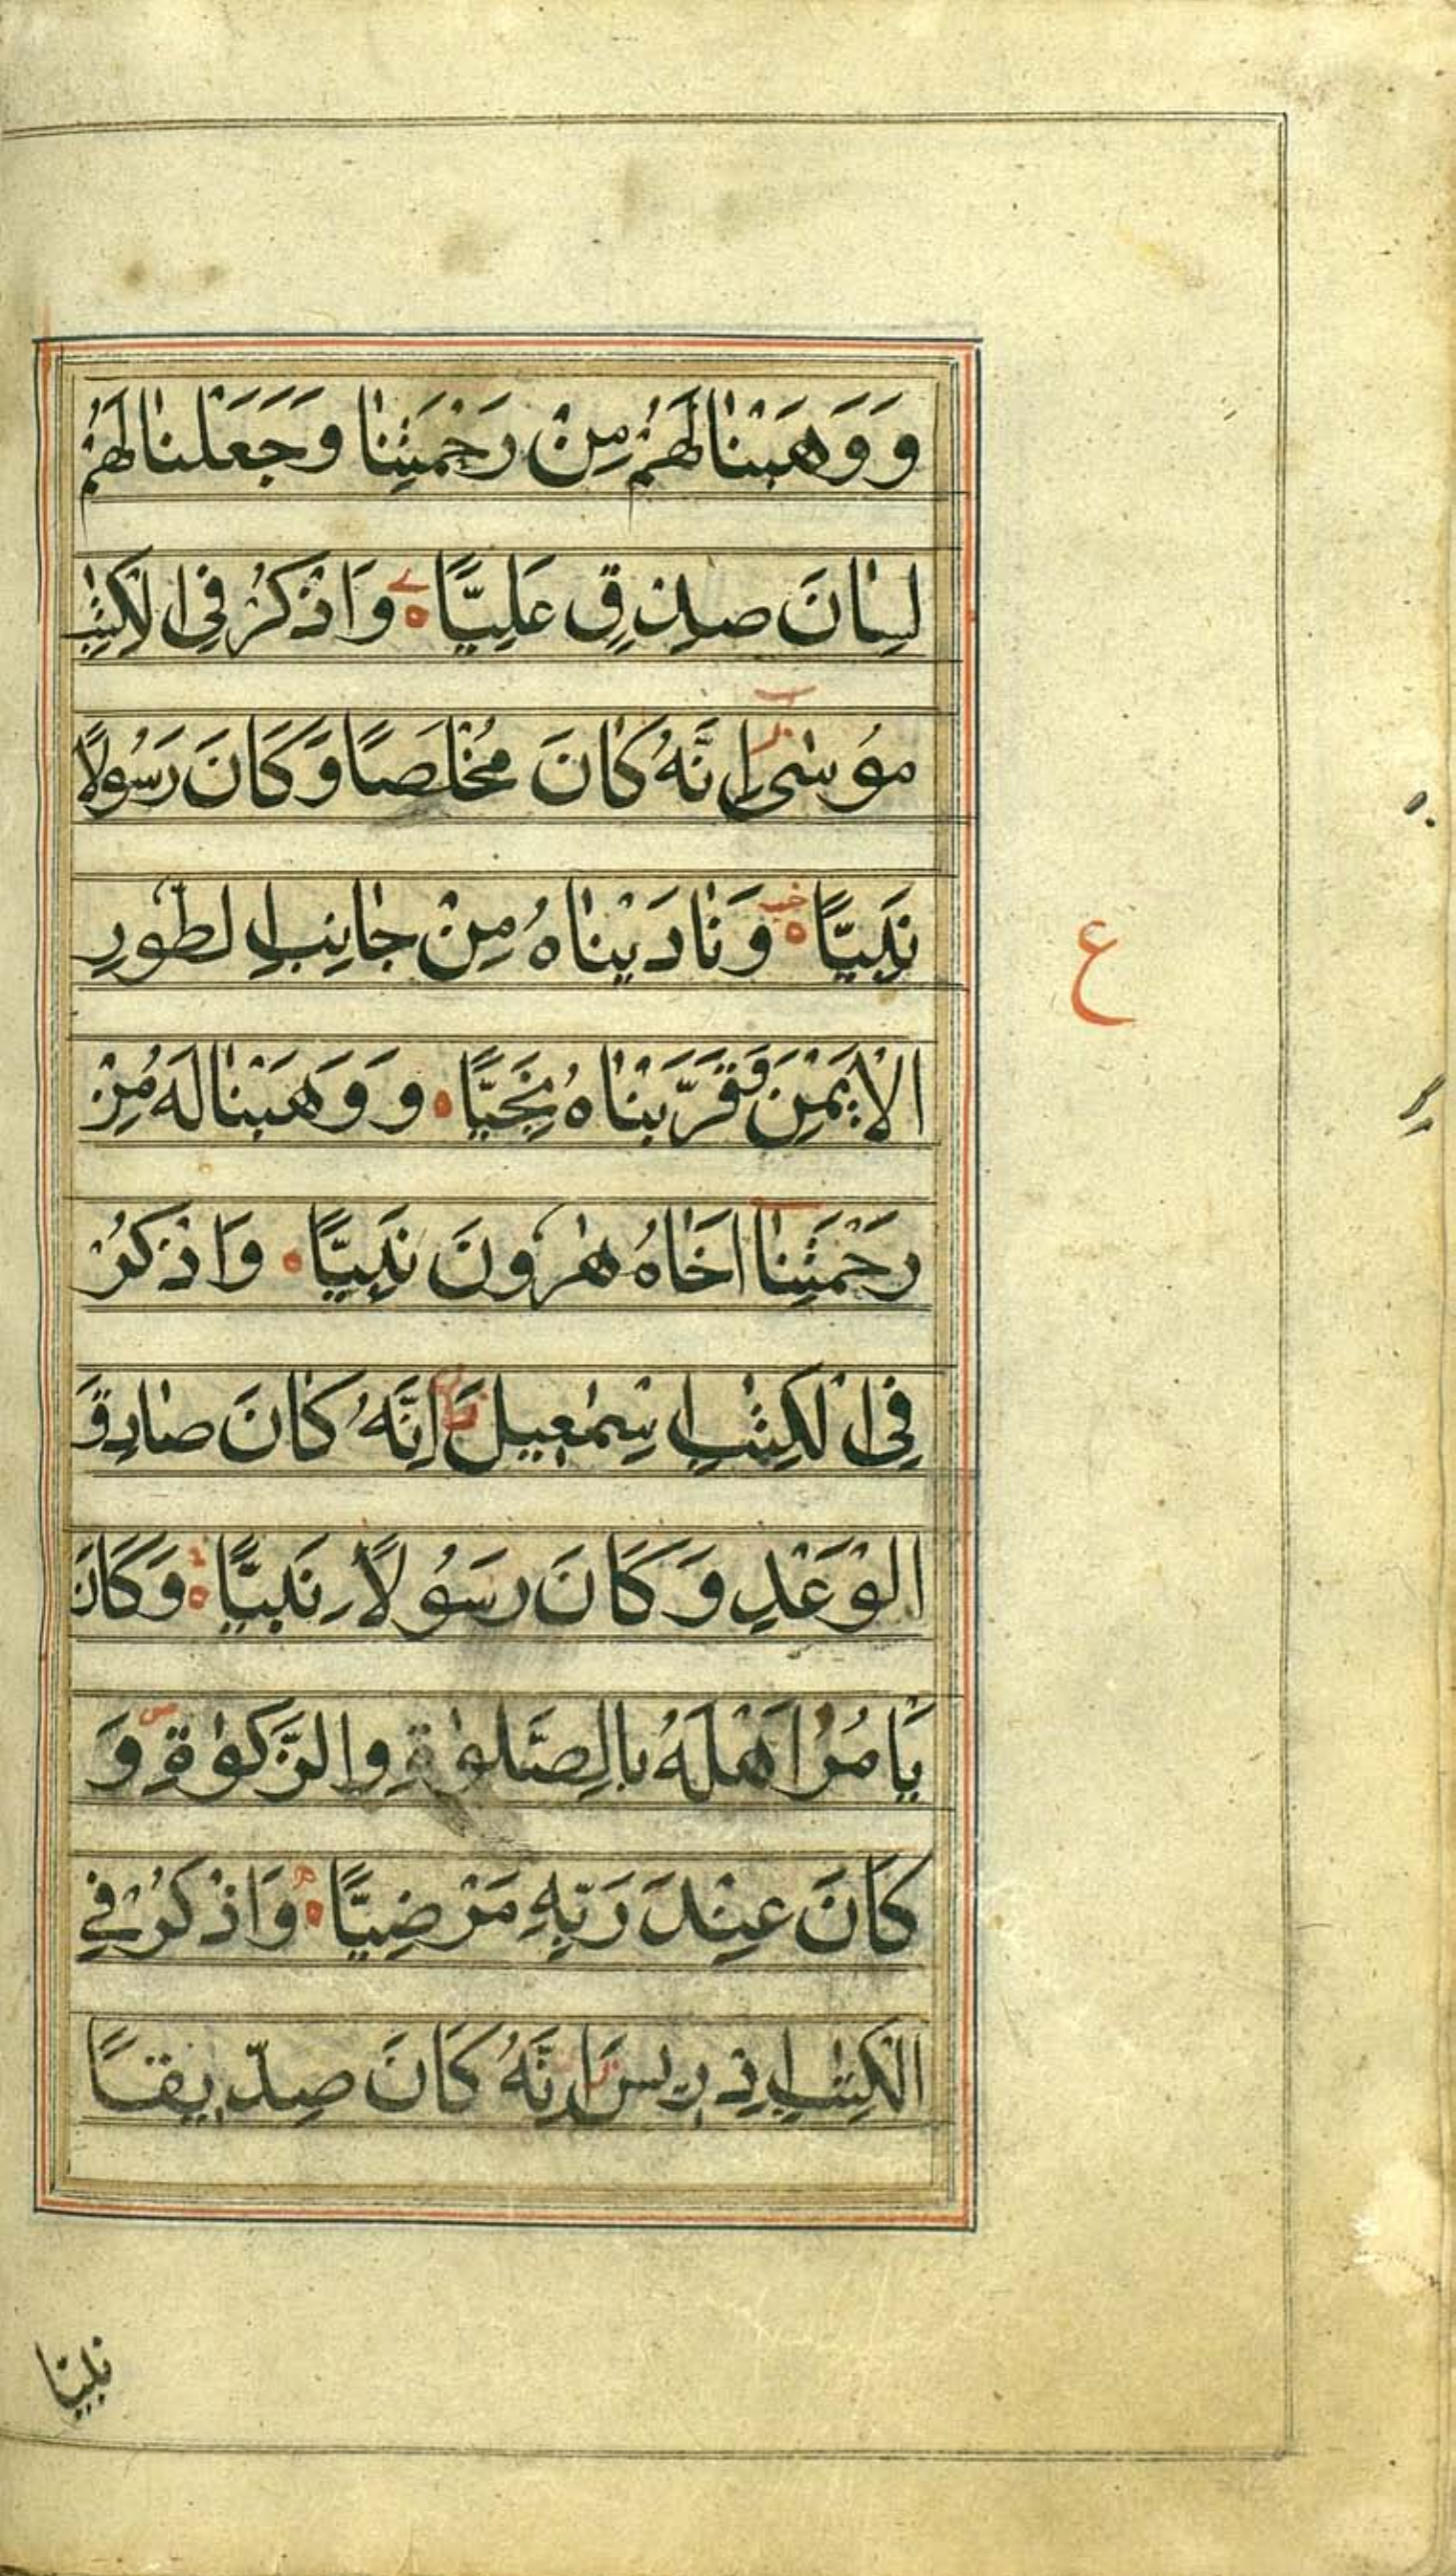 وَوَهَبْنَا لَهُمْ مِنْ رَحْمَتِنَا وَجَعَلْنَا لَهُمْ
لِسَانَ صِدْقٍ عَلِيًّا ه وَاذْكُرْ فِي الْكِتٰبِ
مُوسٰى اِنَّهُ كَانَ مُخْلَصًا وَكَانَ رَسُولًا
نَبِيًّا ه وَنَادَيْنَاهُ مِنْ جَانِبِ الطُّورِ
ع
الْاَيْمَنِ وَقَرَّبْنَاهُ نَجِيًّا ه وَوَهَبْنَا لَهُ مِنْ
رَحْمَتِنَا اَخَاهُ هٰرُونَ نَبِيًّا ه وَاذْكُرْ
فِي الْكِتٰبِ اِسْمٰعِيلَ اِنَّهُ كَانَ صَادِقَ
الْوَعْدِ وَكَانَ رَسُولًا نَبِيًّا ه وَكَانَ
يَأمُرُ اَهْلَهُ بِالصَّلٰوةِ وَالزَّكٰوةِ وَ
كَانَ عِنْدَ رَبِّهِ مَرْضِيًّا ه وَاذْكُرْ فِي
الْكِتٰبِ اِدْرِيسَ اِنَّهُ كَانَ صِدِّيقًا
نبيا